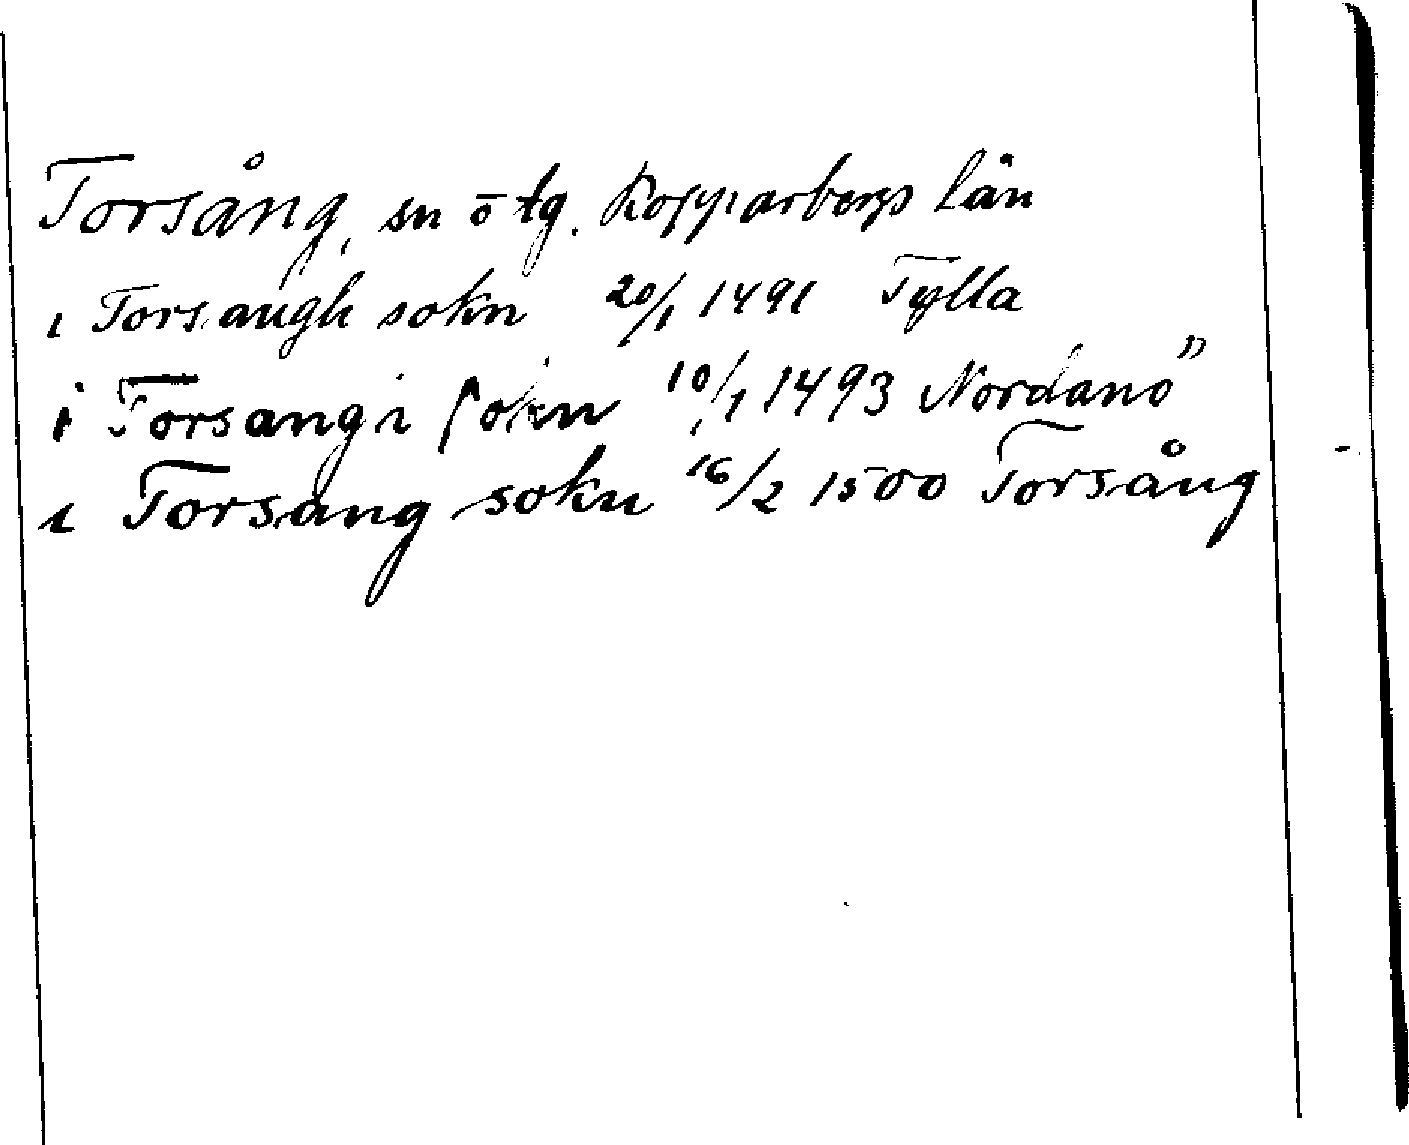 Torsång, sn o tg. Kopparbergs län
i Torsangh sokn 20/1 1491 Tylla
i Torsangi sokn 10/1 1493 Nordanö
i Torsang sokn 16/2 1500 Torsång